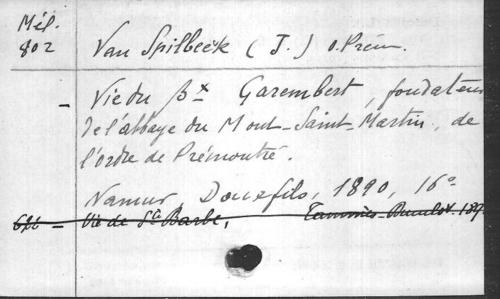 Mél.
802
Van Spilbeeck (J.) o. Prém.
- Vie du Bx Garembert, fondateur
de l'abbaye du Mont-Saint-Martin, de
l'ordre de Prémontré.
Namur, Doucfils, 1890, 16°
- Vie de Ste Barbe, 189